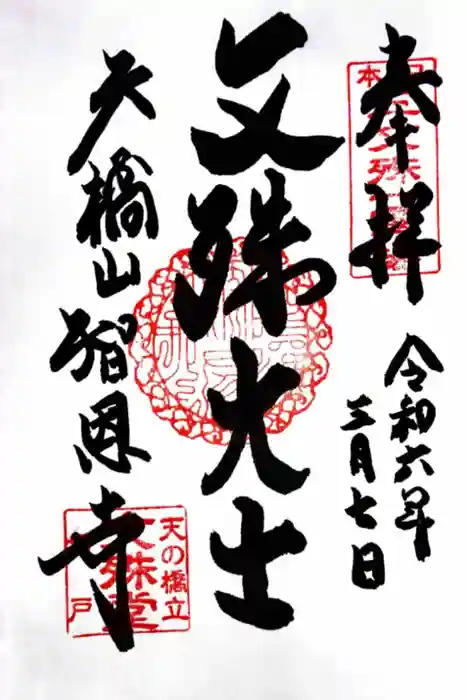 奉拝
令和六年
三月七日
文殊大士
天橋山智恩寺
天の橋立
文殊堂
戸